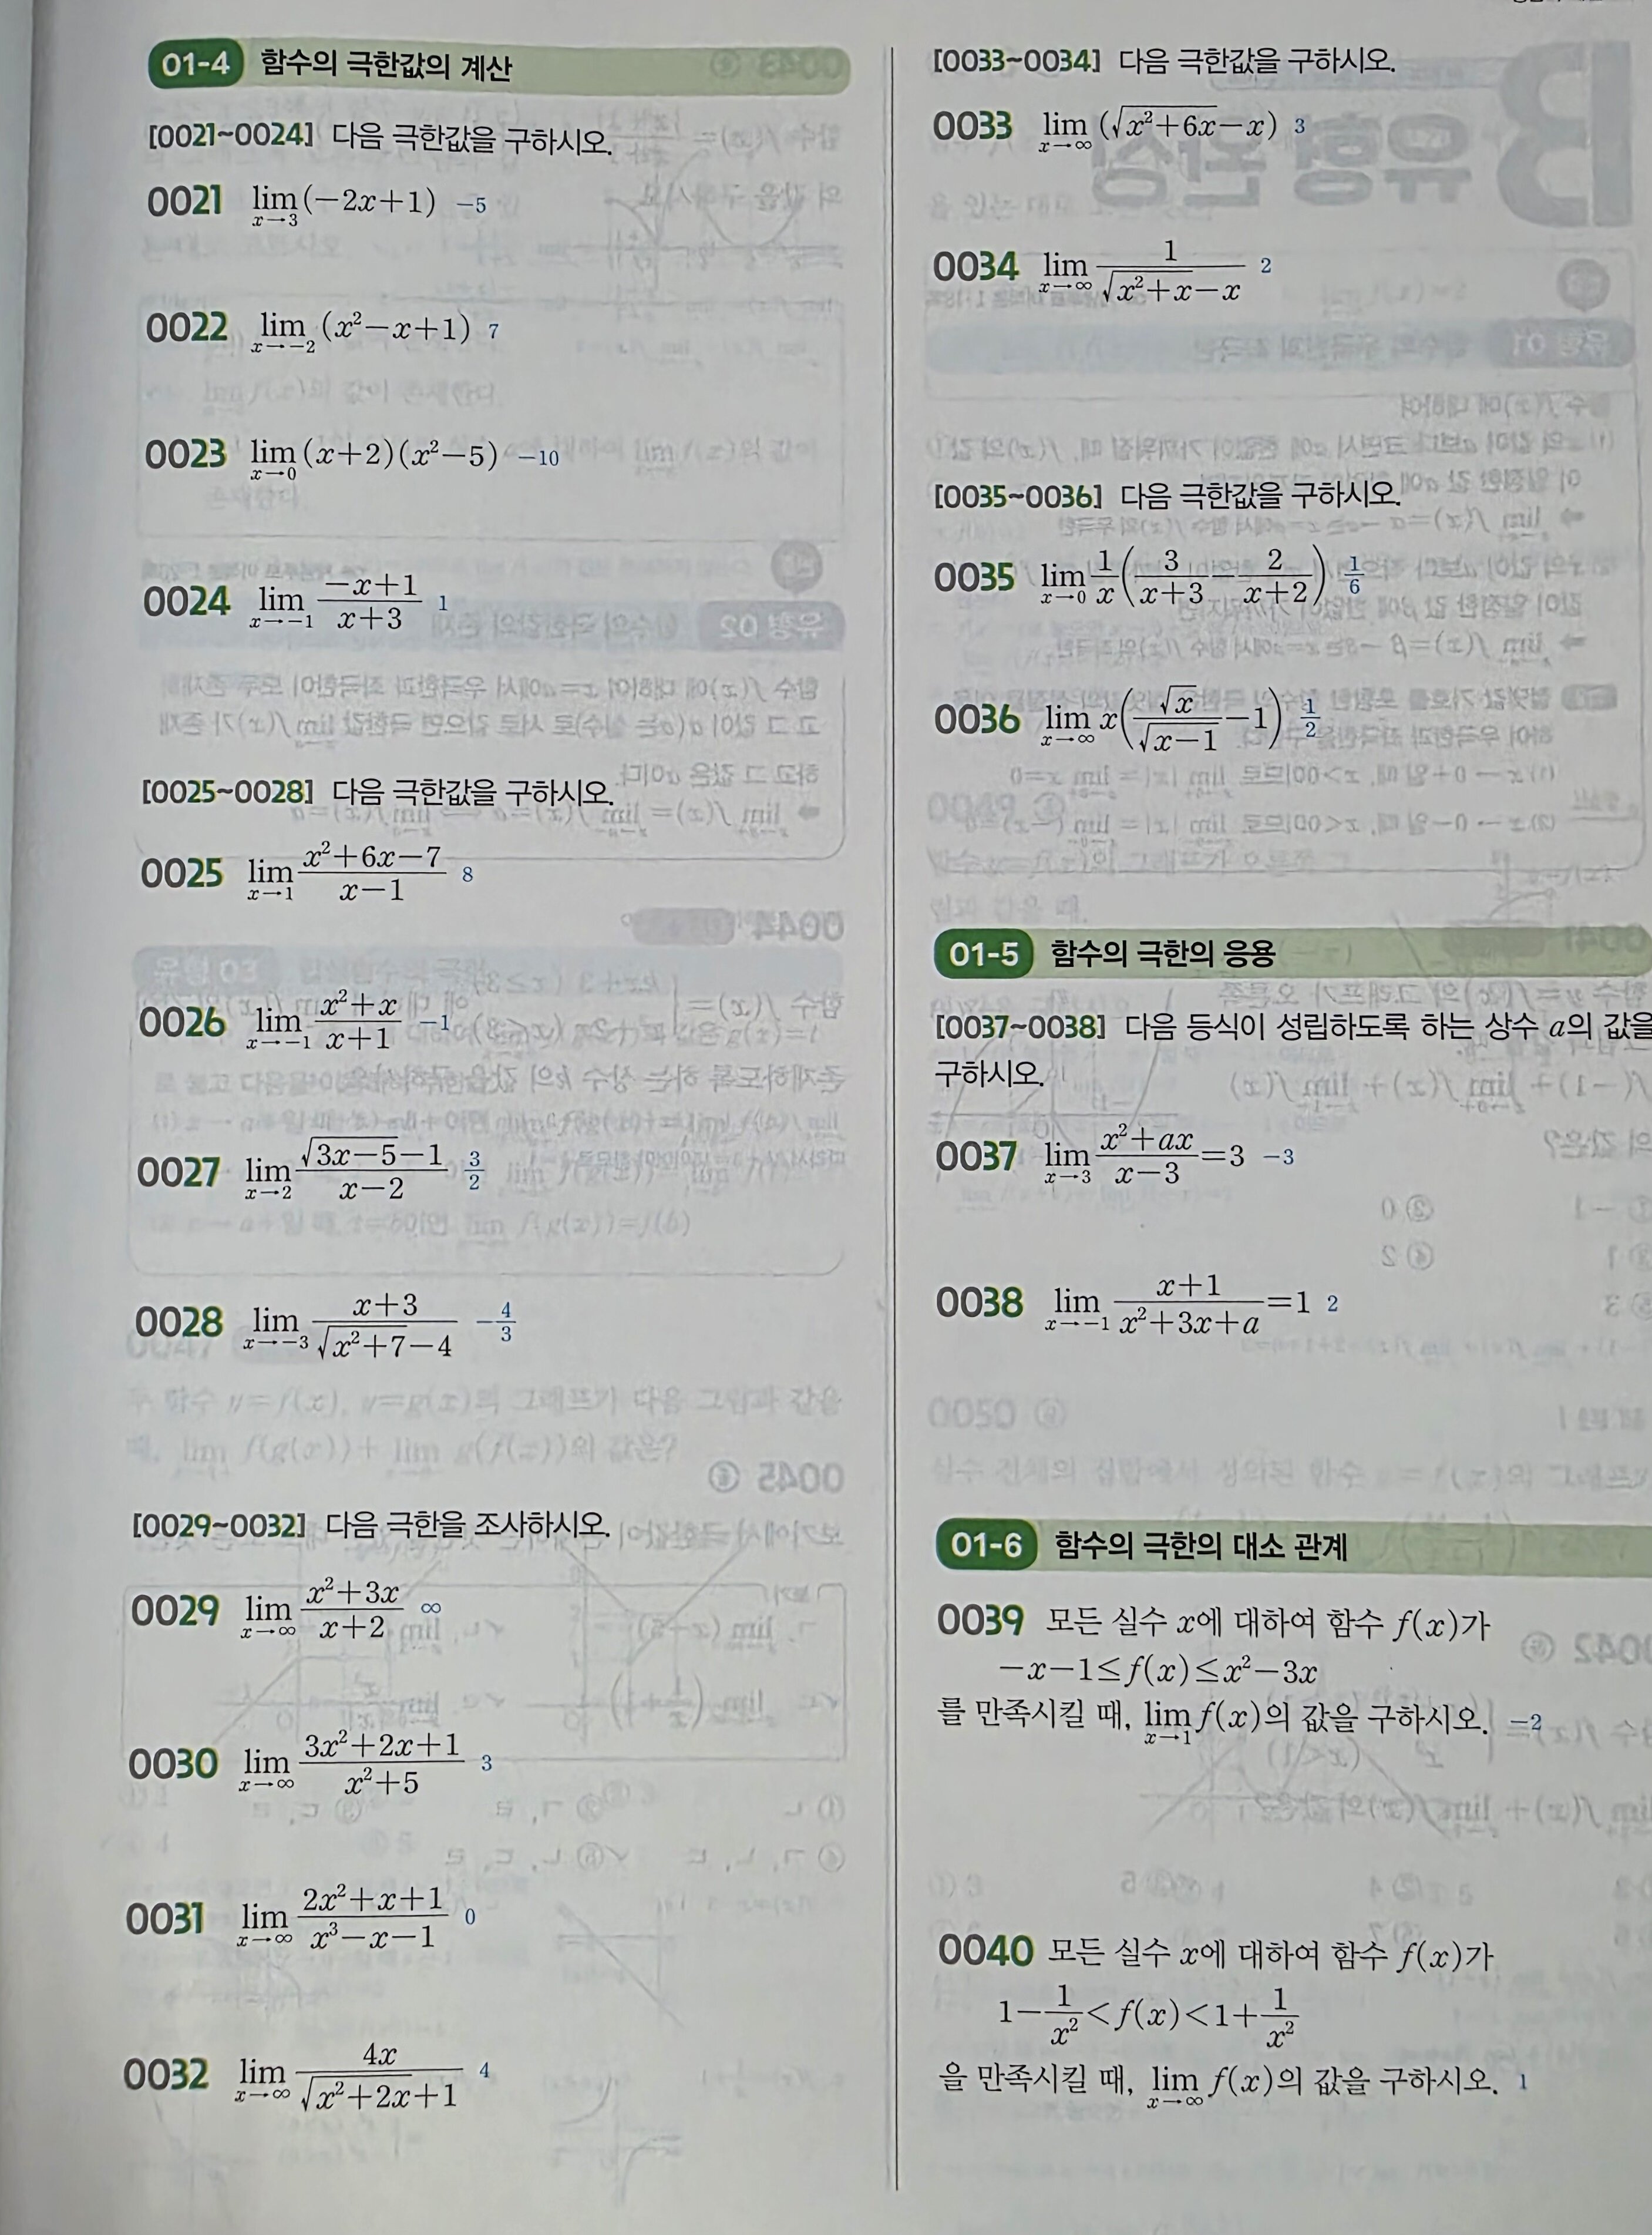 01-4 함수의 극한값의 계산
[0021~0024] 다음 극한값을 구하시오.
0021 lim_{x→3} (−2x+1) −5
0022 lim_{x→−2} (x²−x+1) 7
0023 lim_{x→0} (x+2)(x²−5) −10
0024 lim_{x→−1} (−x+1)/(x+3) 1
[0025~0028] 다음 극한값을 구하시오.
0025 lim_{x→1} (x²+6x−7)/(x−1) 8
0026 lim_{x→−1} (x²+x)/(x+1) −1
0027 lim_{x→2} (√(3x−5)−1)/(x−2) 3/2
0028 lim_{x→−3} (x+3)/(√(x²+7)−4) −4/3
[0029~0032] 다음 극한을 조사하시오.
0029 lim_{x→∞} (x²+3x)/(x+2) ∞
0030 lim_{x→∞} (3x²+2x+1)/(x²+5) 3
0031 lim_{x→∞} (2x²+x+1)/(x³−x−1) 0
0032 lim_{x→∞} 4x/(√(x²+2x)+1) 4
[0033~0034] 다음 극한값을 구하시오.
0033 lim_{x→∞} (√(x²+6x)−x) 3
0034 lim_{x→∞} 1/(√(x²+x)−x) 2
[0035~0036] 다음 극한값을 구하시오.
0035 lim_{x→0} 1/x (3/(x+3) − 2/(x+2)) 1/6
0036 lim_{x→∞} x(√x/√(x−1) −1) 1/2
01-5 함수의 극한의 응용
[0037~0038] 다음 등식이 성립하도록 하는 상수 a의 값을
구하시오.
0037 lim_{x→3} (x²+ax)/(x−3)=3 −3
0038 lim_{x→−1} (x+1)/(x²+3x+a)=1 2
01-6 함수의 극한의 대소 관계
0039 모든 실수 x에 대하여 함수 f(x)가
−x−1≤f(x)≤x²−3x
를 만족시킬 때, lim_{x→1} f(x)의 값을 구하시오. −2
0040 모든 실수 x에 대하여 함수 f(x)가
1−1/x²<f(x)<1+1/x²
을 만족시킬 때, lim_{x→∞} f(x)의 값을 구하시오. 1